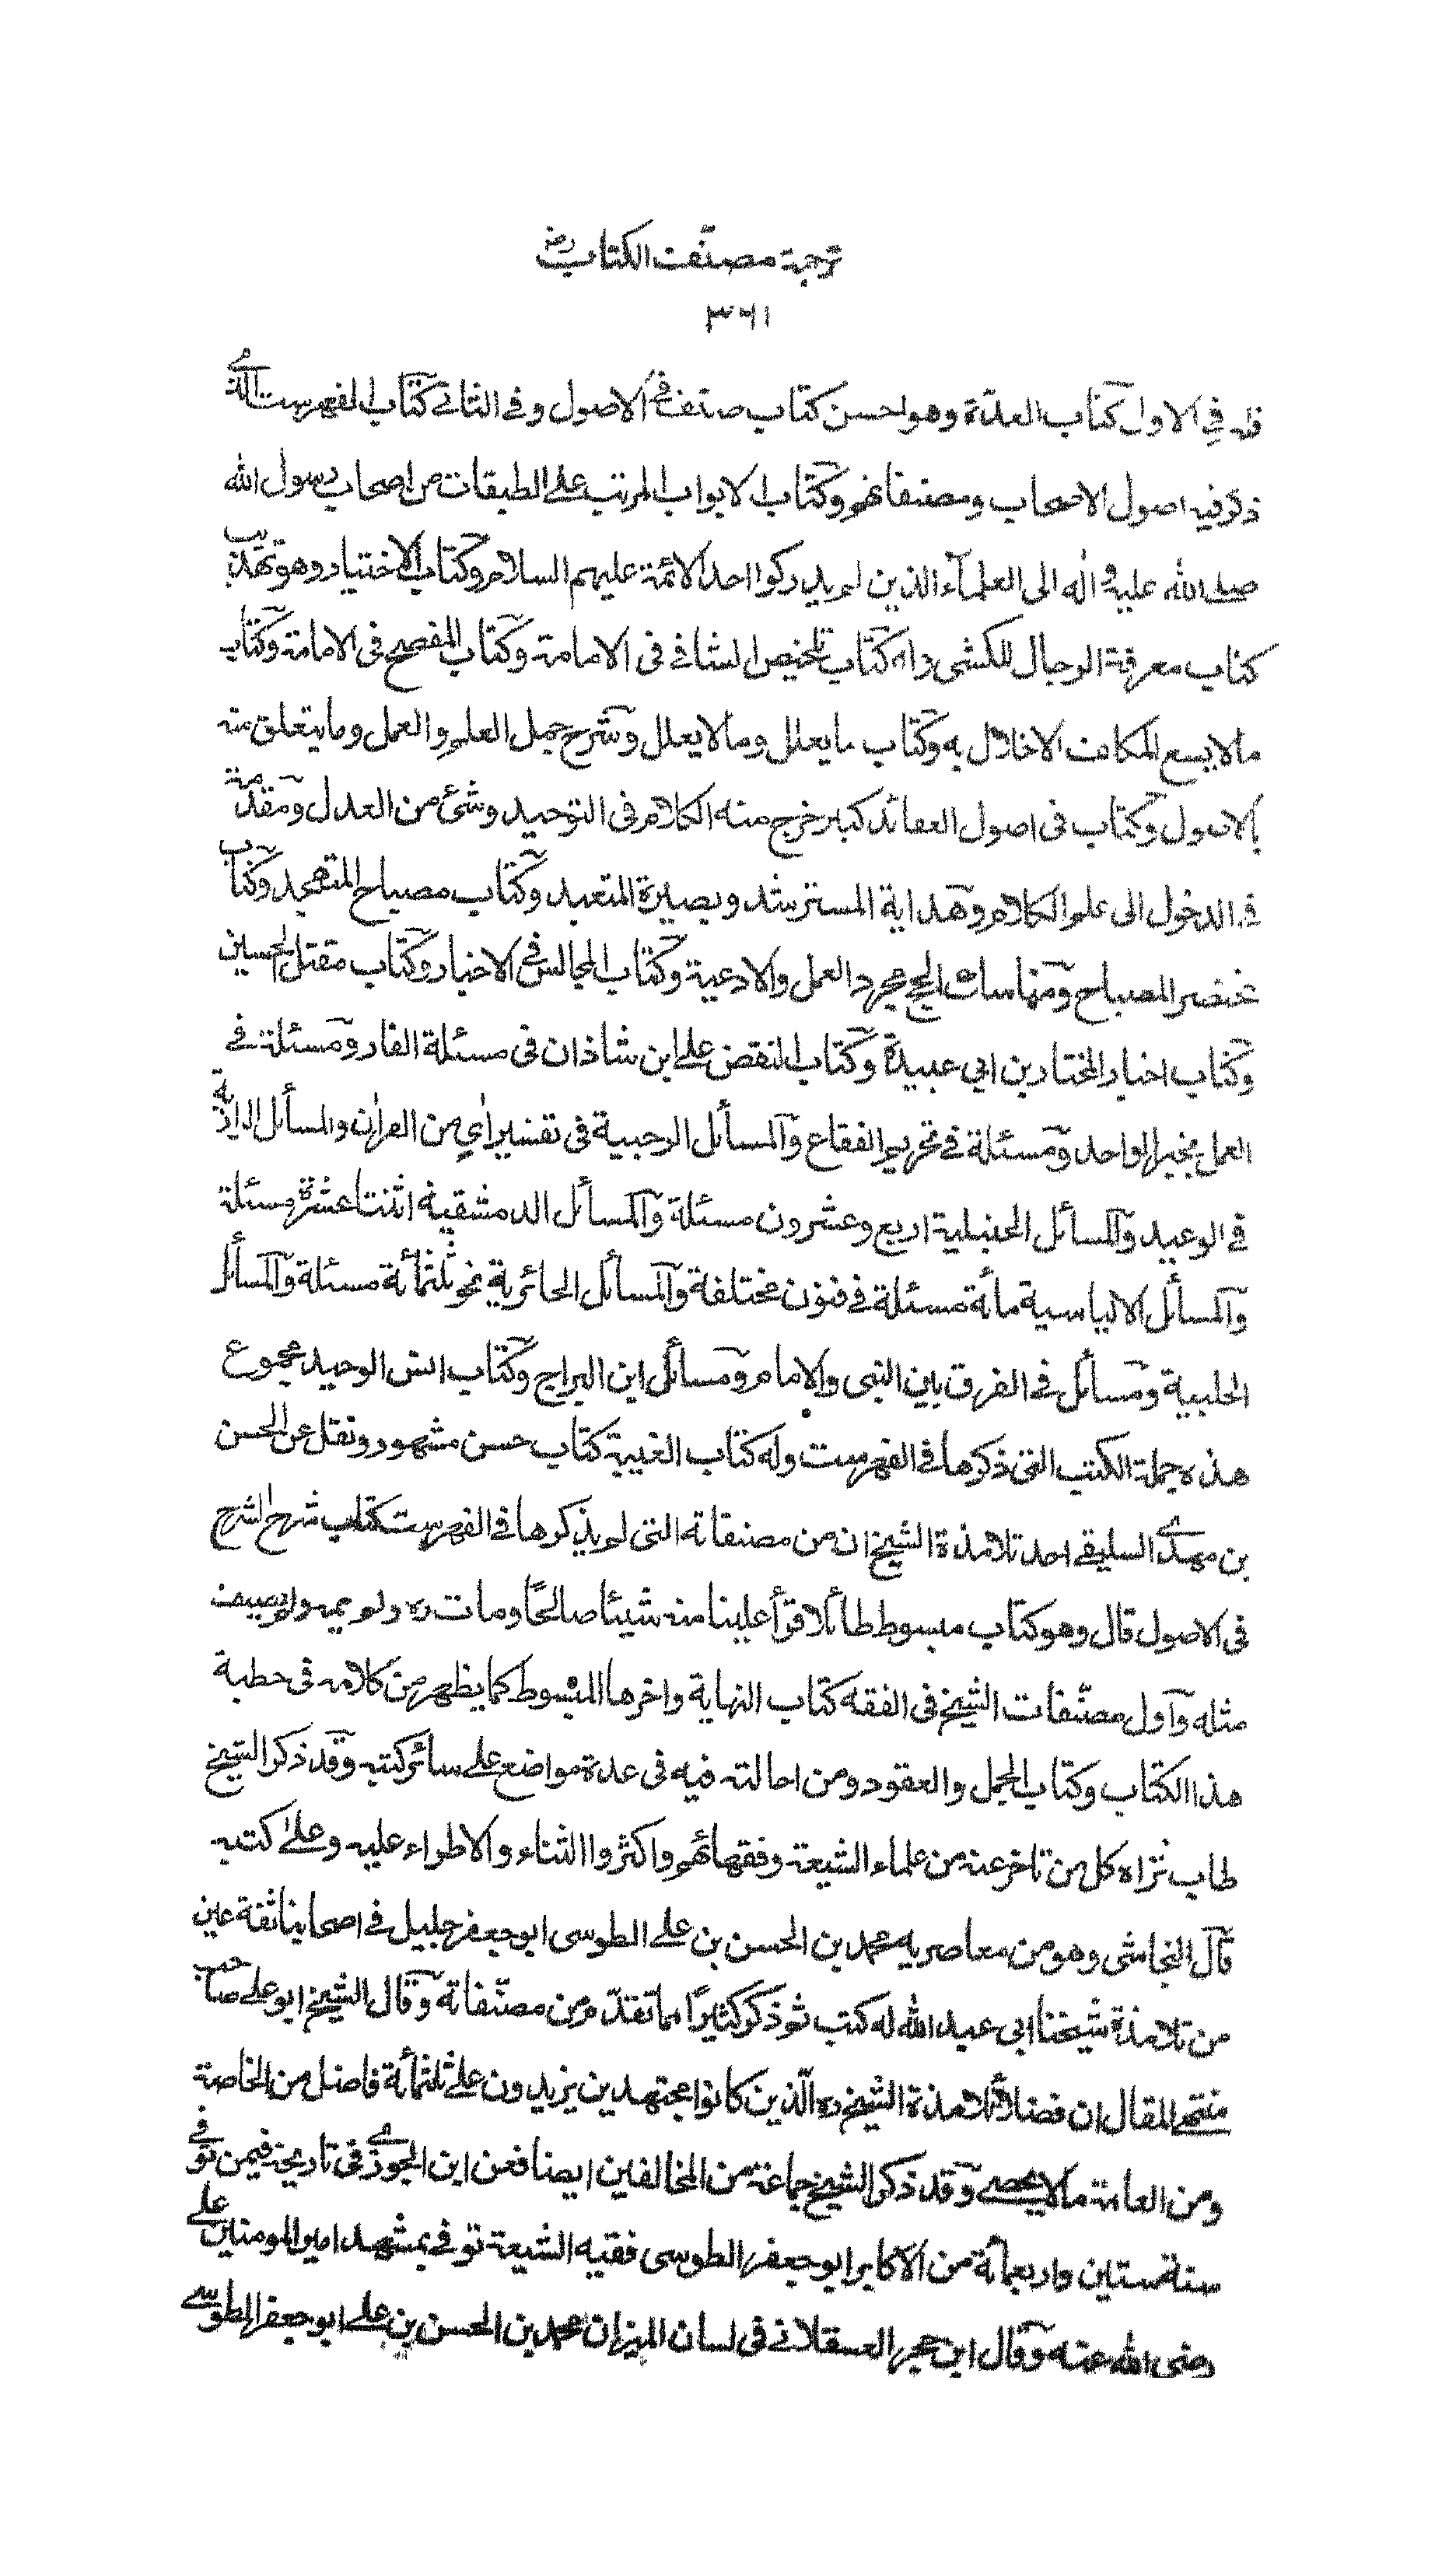 ترجمة مصنّف الكتاب رض
٣٦١
فله فى الاول كتاب العدّة وهو احسن كتاب صنف فى الاصول وفى الثانى كتاب الفهرست الذى
ذكر فيه اصول الاصحاب ومصنفاتهم وكتاب الابواب المرتب على الطبقات من اصحاب رسول الله
صلى الله عليه و اله الى العلماء الذين لم يدركوا احد الائمة عليهم السلام وكتاب الاختيار وهو تهذيب
كتاب معرفة الرجال للكشى وله كتاب تلخيص الشافى فى الامامة وكتاب المفصح فى الامامة وكتاب
مالا يسع المكلف الاخلال به وكتاب ما يعلل وما لا يعلل وشرح جمل العلم والعمل وما يتعلق منه
بالاصول وكتاب فى اصول العقائد كبير خرج منه الكلام فى التوحيد وشئ من العدل ومقدمة
فى الدخول الى علم الكلام وهداية المسترشد وبصيرة المتعبد وكتاب مصباح المتهجد وكتاب
مختصر المصباح ومناسك الحج مجرد العمل والادعية وكتاب المجالس فى الاخبار وكتاب مقتل الحسين
وكتاب اخبار المختار بن ابى عبيدة وكتاب النقض على ابن شاذان فى مسئلة الغار ومسئلة فى
العمل بخبر الواحد ومسئلة فى تحريم الفقاع والمسائل الرجبية فى تفسير اى من القران والمسائل الرازية
فى الوعيد والمسائل الحنبلية اربع وعشرون مسئلة والمسائل الدمشقية اثنتا عشرة مسئلة
والمسائل الالياسية مائة مسئلة فى فنون مختلفة والمسائل الحائرية نحو ثلثمائة مسئلة والمسائل
الحلبية ومسائل فى الفرق بين النبى والامام ومسائل ابن البراج وكتاب انس الوحيد مجموع
هذه جملة الكتب التى ذكرها فى الفهرست وله كتاب الغيبة كتاب حسن مشهور ونقل عن الحسن
بن مهدى السليقى احد تلامذة الشيخ ان من مصنفاته التى لم يذكرها فى الفهرست كتاب شرح الشرح
فى الاصول قال وهو كتاب مبسوط طائلا قرأ علينا منه شيئا صالحًا ومات ره ولم يتمه ولم يصنف
مثله واول مصنّفات الشيخ فى الفقه كتاب النهاية واخرها المبسوط كما يظهر من كلامه فى خطبة
هذا الكتاب وكتاب الجمل والعقود ومن احالته فيه فى عدة مواضع على سائر كتبه وقد ذكر الشيخ
طاب ثراه كل من تاخر عنه من علماء الشيعة وفقهائهم واكثروا الثناء والاطراء عليه وعلى كتبه
قال النجاشى وهو من معاصريه محمد بن الحسن بن على الطوسى ابو جعفر جليل فى اصحابنا ثقة عين
من تلامذة شيخنا ابى عبد الله له كتب ثم ذكر كثيرًا مما تقدّم من مصنّفاته وقال الشيخ ابو على صاحب
منتهى المقال ان فضلاء تلامذة الشيخ ره الّذين كانوا مجتهدين يزيدون على ثلثمائة فاضل من الخاصة
ومن العامة مالا يحصى وقد ذكر الشيخ جماعة من المخالفين ايضا فعن ابن الجوزى فى تاريخه فيمن توفى
سنة ستين واربعمائة من الاكابر ابو جعفر الطوسى فقيه الشيعة توفى بمشهد امير المومنين على
رضى الله عنه وقال ابن حجر العسقلانى فى لسان الميزان محمد بن الحسن بن على ابو جعفر الطوسى